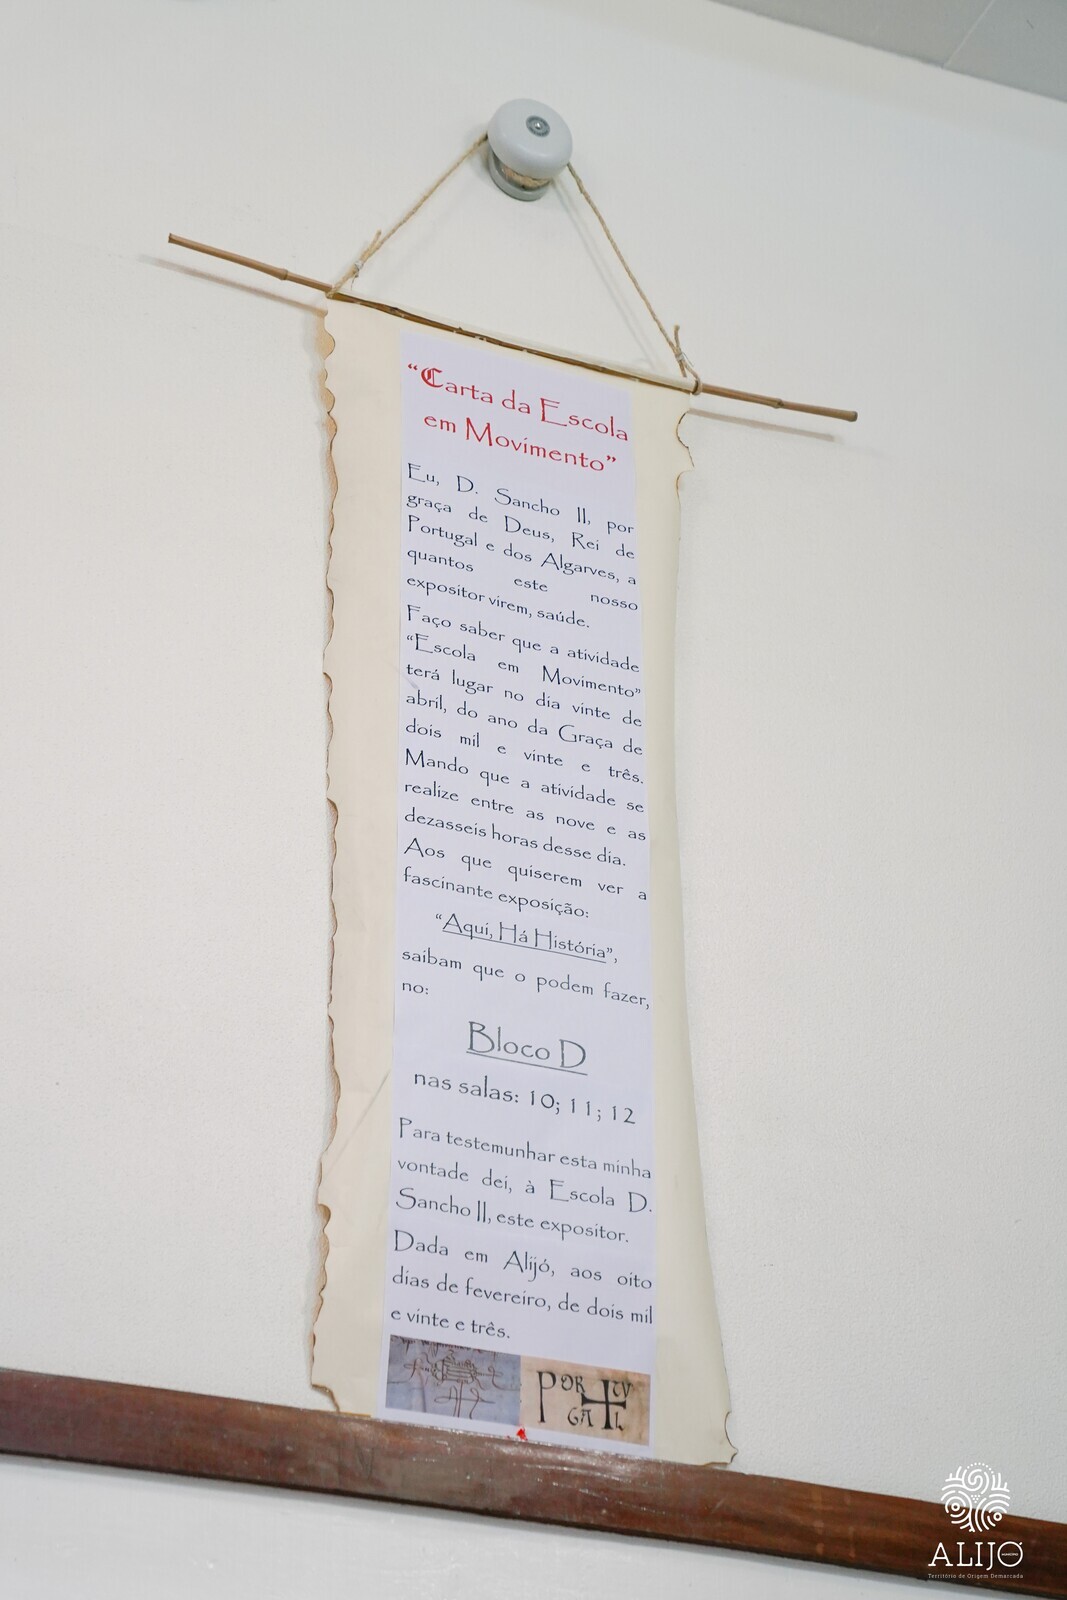 “Carta da Escola
em Movimento”
Eu, D. Sancho II, por
graça de Deus, Rei de
Portugal e dos Algarves, a
quantos este nosso
expositor virem, saúde.
Faço saber que a atividade
“Escola em Movimento”
terá lugar no dia vinte de
abril, do ano da Graça de
dois mil e vinte e três.
Mando que a atividade se
realize entre as nove e as
dezasseis horas desse dia.
Aos que quiserem ver a
fascinante exposição:
“Aqui, Há História”,
saibam que o podem fazer,
no:
Bloco D
nas salas: 10; 11; 12
Para testemunhar esta minha
vontade dei, à Escola D.
Sancho II, este expositor.
Dada em Alijó, aos oito
dias de fevereiro, de dois mil
e vinte e três.
POR TU
GA L
ALIJÓ
Território de Origem Demarcada